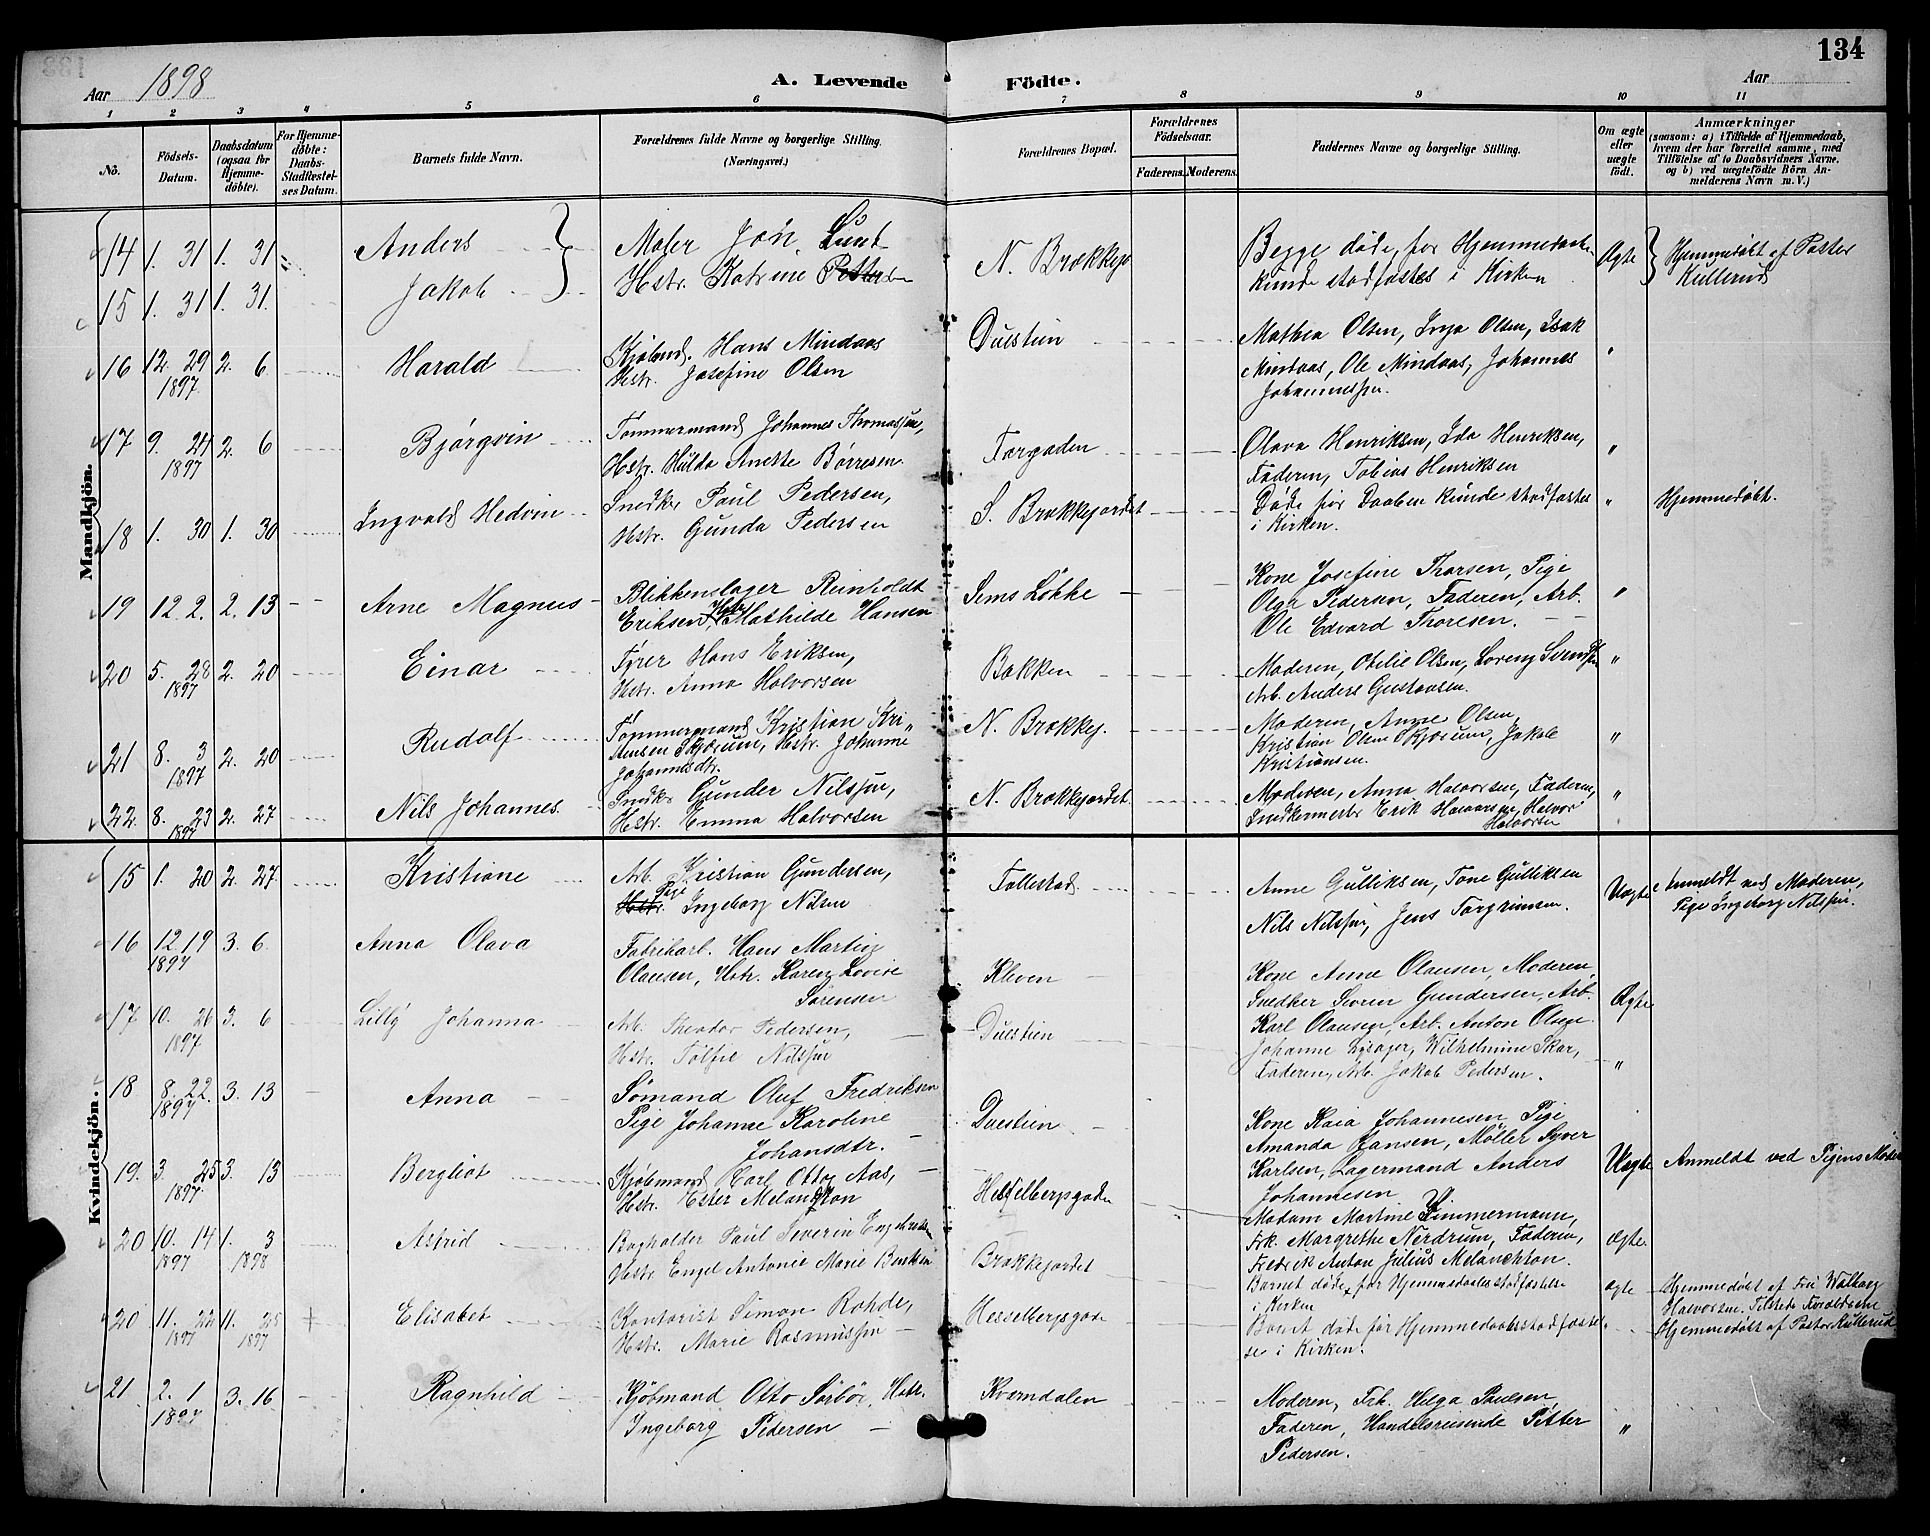 134
Aar 1898
A. Levende Födte.
Aar
1 2 3 4 5 6 7 8 9 10 11
No.
Födsels-Datum.
Daabsdatum (ogsaa for Hjemmedöbte).
For Hjemmedöbte: Daabs-Stadfæstelses Datum.
Barnets fulde Navn.
Forældrenes fulde Navne og borgerlige Stilling.
(Næringsvei.)
Forældrenes Bopæl.
Forældrenes Födselsaar.
Faderens. Moderens.
Faddernes Navne og borgerlige Stilling.
Om ægte eller uægte födt.
Anmærkninger
(saasom: a) i Tilfælde af Hjemmedaab,
hvem der har forrettet samme, med
Tilföielse af to Daabsvidners Navne.
og b) ved uægtefödte Börn Anmelderens Navn m.V.)
Mandkjön.
14 1. 31 1. 31 Anders
Maler Jon Lunt
N. Brækkejo
Begge døde, før Hjemmedaaben
Ægte
Hjemmedøbt af Pastor
Kullerud
15 1. 31 1. 31. Jakob
Hstr. Katrine
kunde stadfæstes i Kirken
16 12. 29 1897. 2. 6 Harald
Kjøbmd. Hans Mindaas
Hstr. Josefine Olsen
Duestien
Mathea Olsen, Inga Olsen, Isak
Mindaas, Ole Mindaas, Johannes
Johannessen.
"
17 9. 24 1897 2. 6 Bjørgvin
Tømmermand Johannes Thomassen,
Hstr. Hulda Anette Børresen.
Torgaden
Olava Henriksen, Ida Henriksen,
Faderen, Tobias Henriksen
"
18 1. 30 1. 30 Ingvald Hedvin
Snedker Paul Pedersen,
Hstr. Gunda Pedersen
S. Brækkejordet
Døde før Daaben kunde stadfæstes
i Kirken.
"
Hjemmedøbt.
19 12. 2. 2. 13 Arne Magnus
Blikkenslager Reinholdt
Eriksen, Hstr. Mathilde Hansen
Sems Løkke
Kone Josefine Thorsen, Pige
Olga Pedersen, Faderen, Arb.
Ole Edvard Thoresen.
"
20 5. 28 1897 2. 20 Einar
Fyrer Hans Eriksen,
Hstr. Anna Halvorsen
Bakken
Moderen, Otilie Olsen, Lorenz Svendsen
Arb. Anders Gustavsen.
"
21 8. 3 1897 2. 20 Rudolf
Tømmermand Kristian Kri"
stensen Skjørum, Hstr. Johanne
Johannesdtr.
N. Brækkej.
Moderen, Anne Olsen,
Kristian Olsen Skjørum, Jakob
Kristiansen.
"
22. 8. 23 1897 2. 27 Nils Johannes.
Snedker Gunder Nilssen,
Hstr. Emma Halvorsen
N. Brækkejordet.
Moderen, Anna Halvorsen, Faderen,
Snedkermester Erik Halvorsen, Halvor
Halvorsen
"
Kvindekjön.
15 1. 20 2. 27. Kristiane
Arb. Kristian Gundersen,
Hstr. Pige Ingeborg Nilsen
Follestad.
Anne Gulliksen, Tone Gulliksen
Nils Nilssen, Jens Torgrimsen.
Uægte
Anmeldt ved Moderen,
Pige Ingeborg Nilssen.
16 12 19 1897 3. 6 Anna Olava
Fabrikarb. Hans Martin
Olausen, Hstr. Karen Lovise
Sørensen
Kleven
Kone Anne Olausen, Moderen,
Snedker Søren Gundersen, Arb.
Karl Olausen, Arb. Anton Olsen
Ægte
17 10. 26 1897 3. 6 Lilly Johanna
Arb. Theodor Pedersen,
Hstr. Tolfie Nilssen
Duestien
Johanne Lysager, Wilhelmine Skar,
Faderen, Arb. Jakob Pedersen.
"
18 8. 22. 1897 3. 13 Anna
Sømand Oluf Fredriksen
Pige Johanne Karoline
Johansdtr.
Duestien
Kone Kaia Johannesen, Pige
Amanda Hansen, Møller Syver
Karlsen, Lagermand Anders
Johannesen
Uægte
Anmeldt ved Pigens Moder
19. 3. 25 1897 3. 13 Bergliot
Kjøbmand Carl Otto Aas,
Hstr. Ester Melanchton
Hesselbergsgaden
Madam Martine Zimmermann,
Frk. Margrethe Nerdrum, Faderen,
Fredrik Anton Julius Melanchton.
Ægte.
20 10. 14 1897 1. 3 1898 Astrid
Bogholder Paul Severin Engebretsen
Hstr. Engel Antonie Marie
Brækkejordet
Barnet døde før Hjemmedaabsstadfæstelse
i Kirken
ægte
Hjemmedøbt af Fru Walborg
Halvorsen. Tilstede Forældrene
20 11. 22 1897 11. 25 1897 + Elisabet
Kontorist Simon Rohde,
Hstr. Marie Rasmussen
Hesselbergsgaden
Barnet døde før Hjemmedaabsstadfæstel
se i Kirken.
Hjemmedøbt af Pastor Kullerud
21 2. 1 1897 3. 16 Ragnhild
Kjøbmand Otto Sørbø, Hstr.
Ingeborg Pedersen
Kverndalen
Moderen, Frk. Helga Paulsen,
Faderen, Handelsreisende Petter
Pedersen.
"